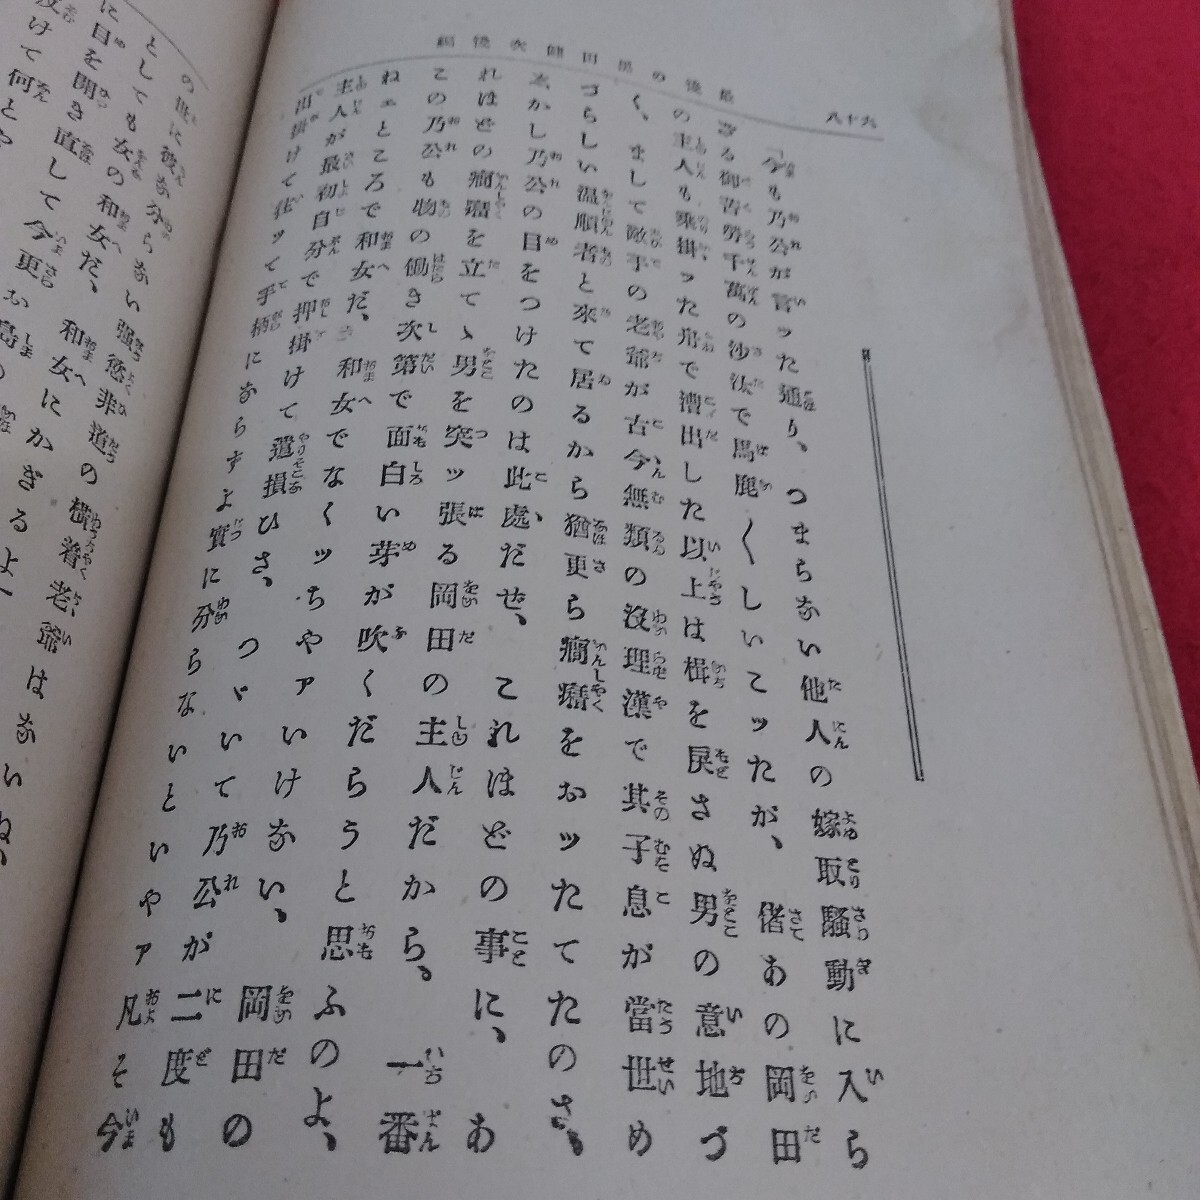 最後の岡田健次後編
六十八
「今も乃公が言ッた通り、つまらない他人の嫁取騒動に入ら
ざる御苦勞千萬の沙汰で馬鹿〱しいこッたが、偖あの岡田
の主人も乘掛ッた舟で漕出した以上は楫を戻さぬ男の意地づ
く、まして敵手の老爺が古今無類の沒理漢で其子息が當世め
づらしい温順者と來て居るから猶更ら癇癪をおッたてたのさ。
ゑ、かし乃公の目をつけたのは此處だぜ、これほどの事に、あ
れほどの癇癪を立てゝ男を突ッ張る岡田の主人だから。一番
この乃公も物の働き次第で面白い芽が吹くだらうと思ふのよ、
ねェところで和女だ、和女でなくッちやァいけない、岡田の
主人が最初自分で押掛けて遣損ひさ、つゞいて乃公が二度も
出掛けて往ッて手柄にならずよ實に分らないといやァ凡そ今
の世に彼な分らない强慾非道の橫着老爺はないね、
としても女の和女だ、和女にかぎるよ
に目を開き直して今更お島の
けて何とや